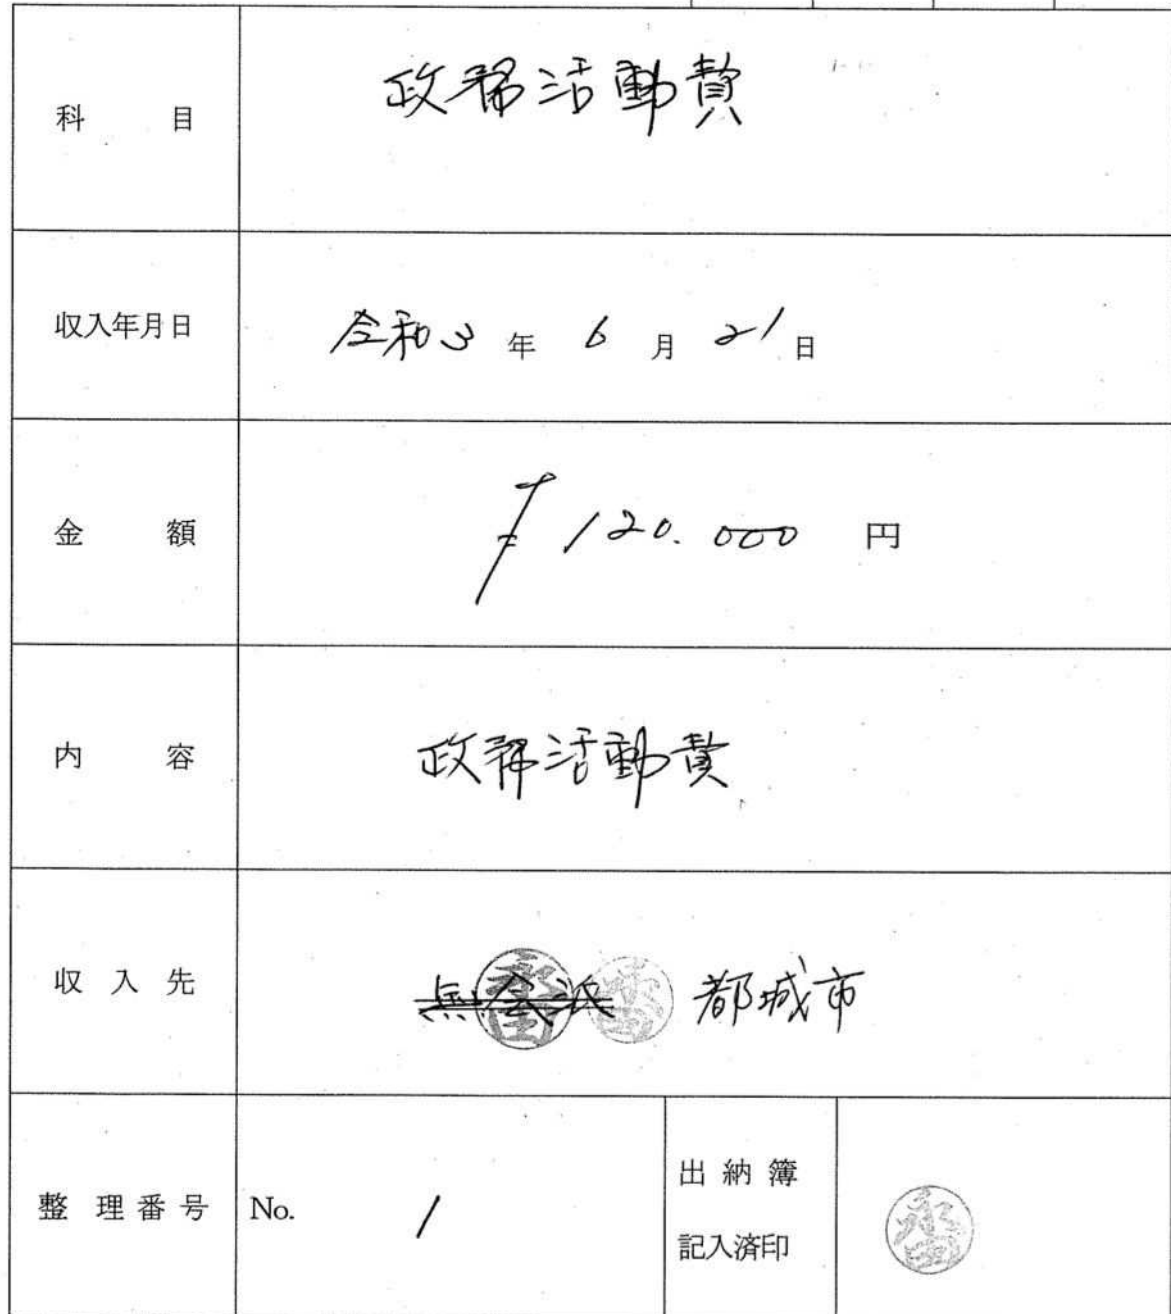 科 目 政務活動費
収入年月日 令和3年6月21日
金 額 ¥120.000円
内 容 政務活動費
収入先 無会派 都城市
整理番号 No. 1 出納簿
記入済印